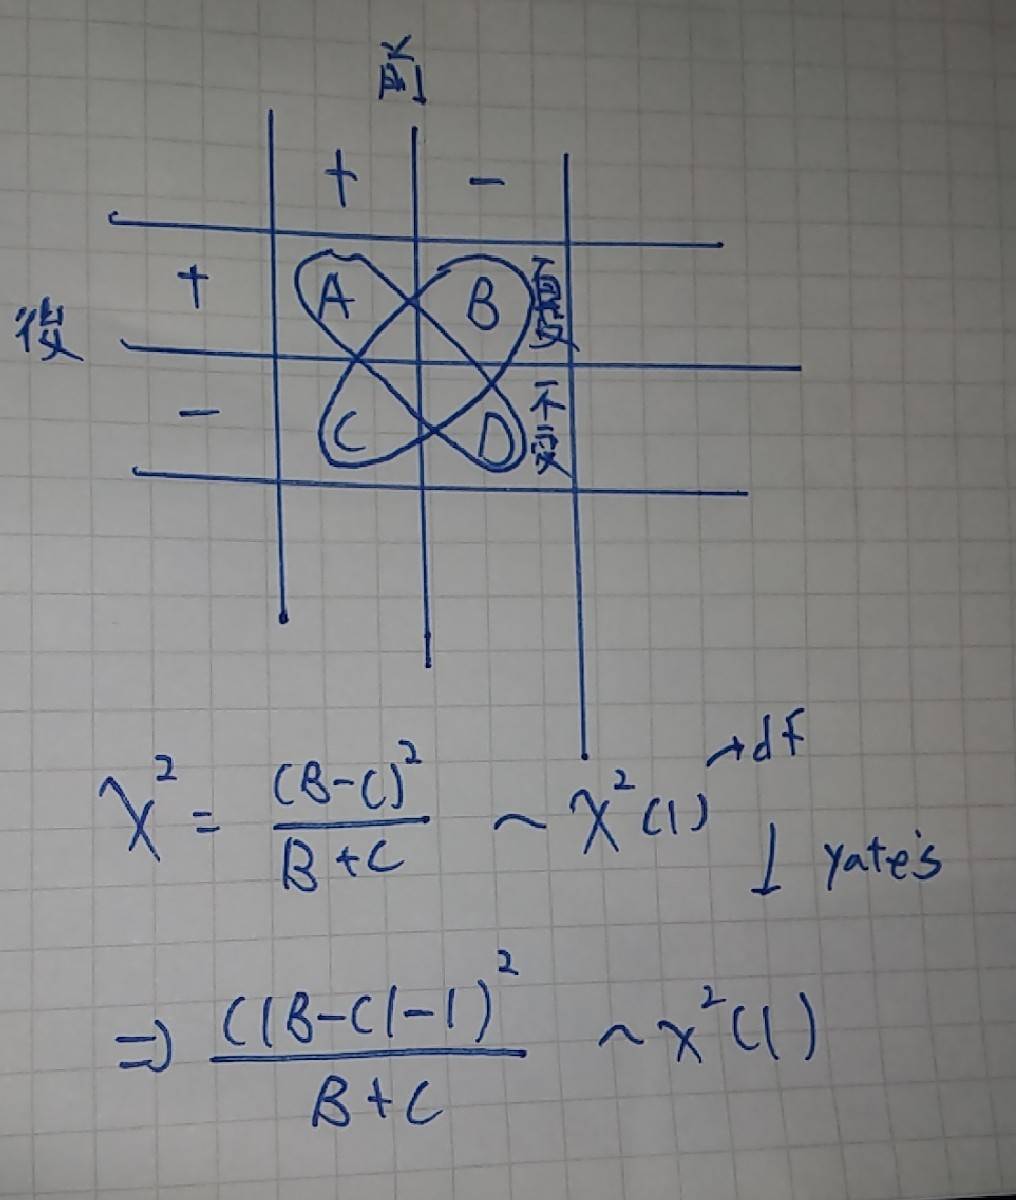 前
+ -
後 + A B 憂
- C D 不变
χ² = (B-C)² / B+C ~ χ²(1) → df
↓ Yate's
⇒ (|B-C|-1)² / B+C ~ χ²(1)